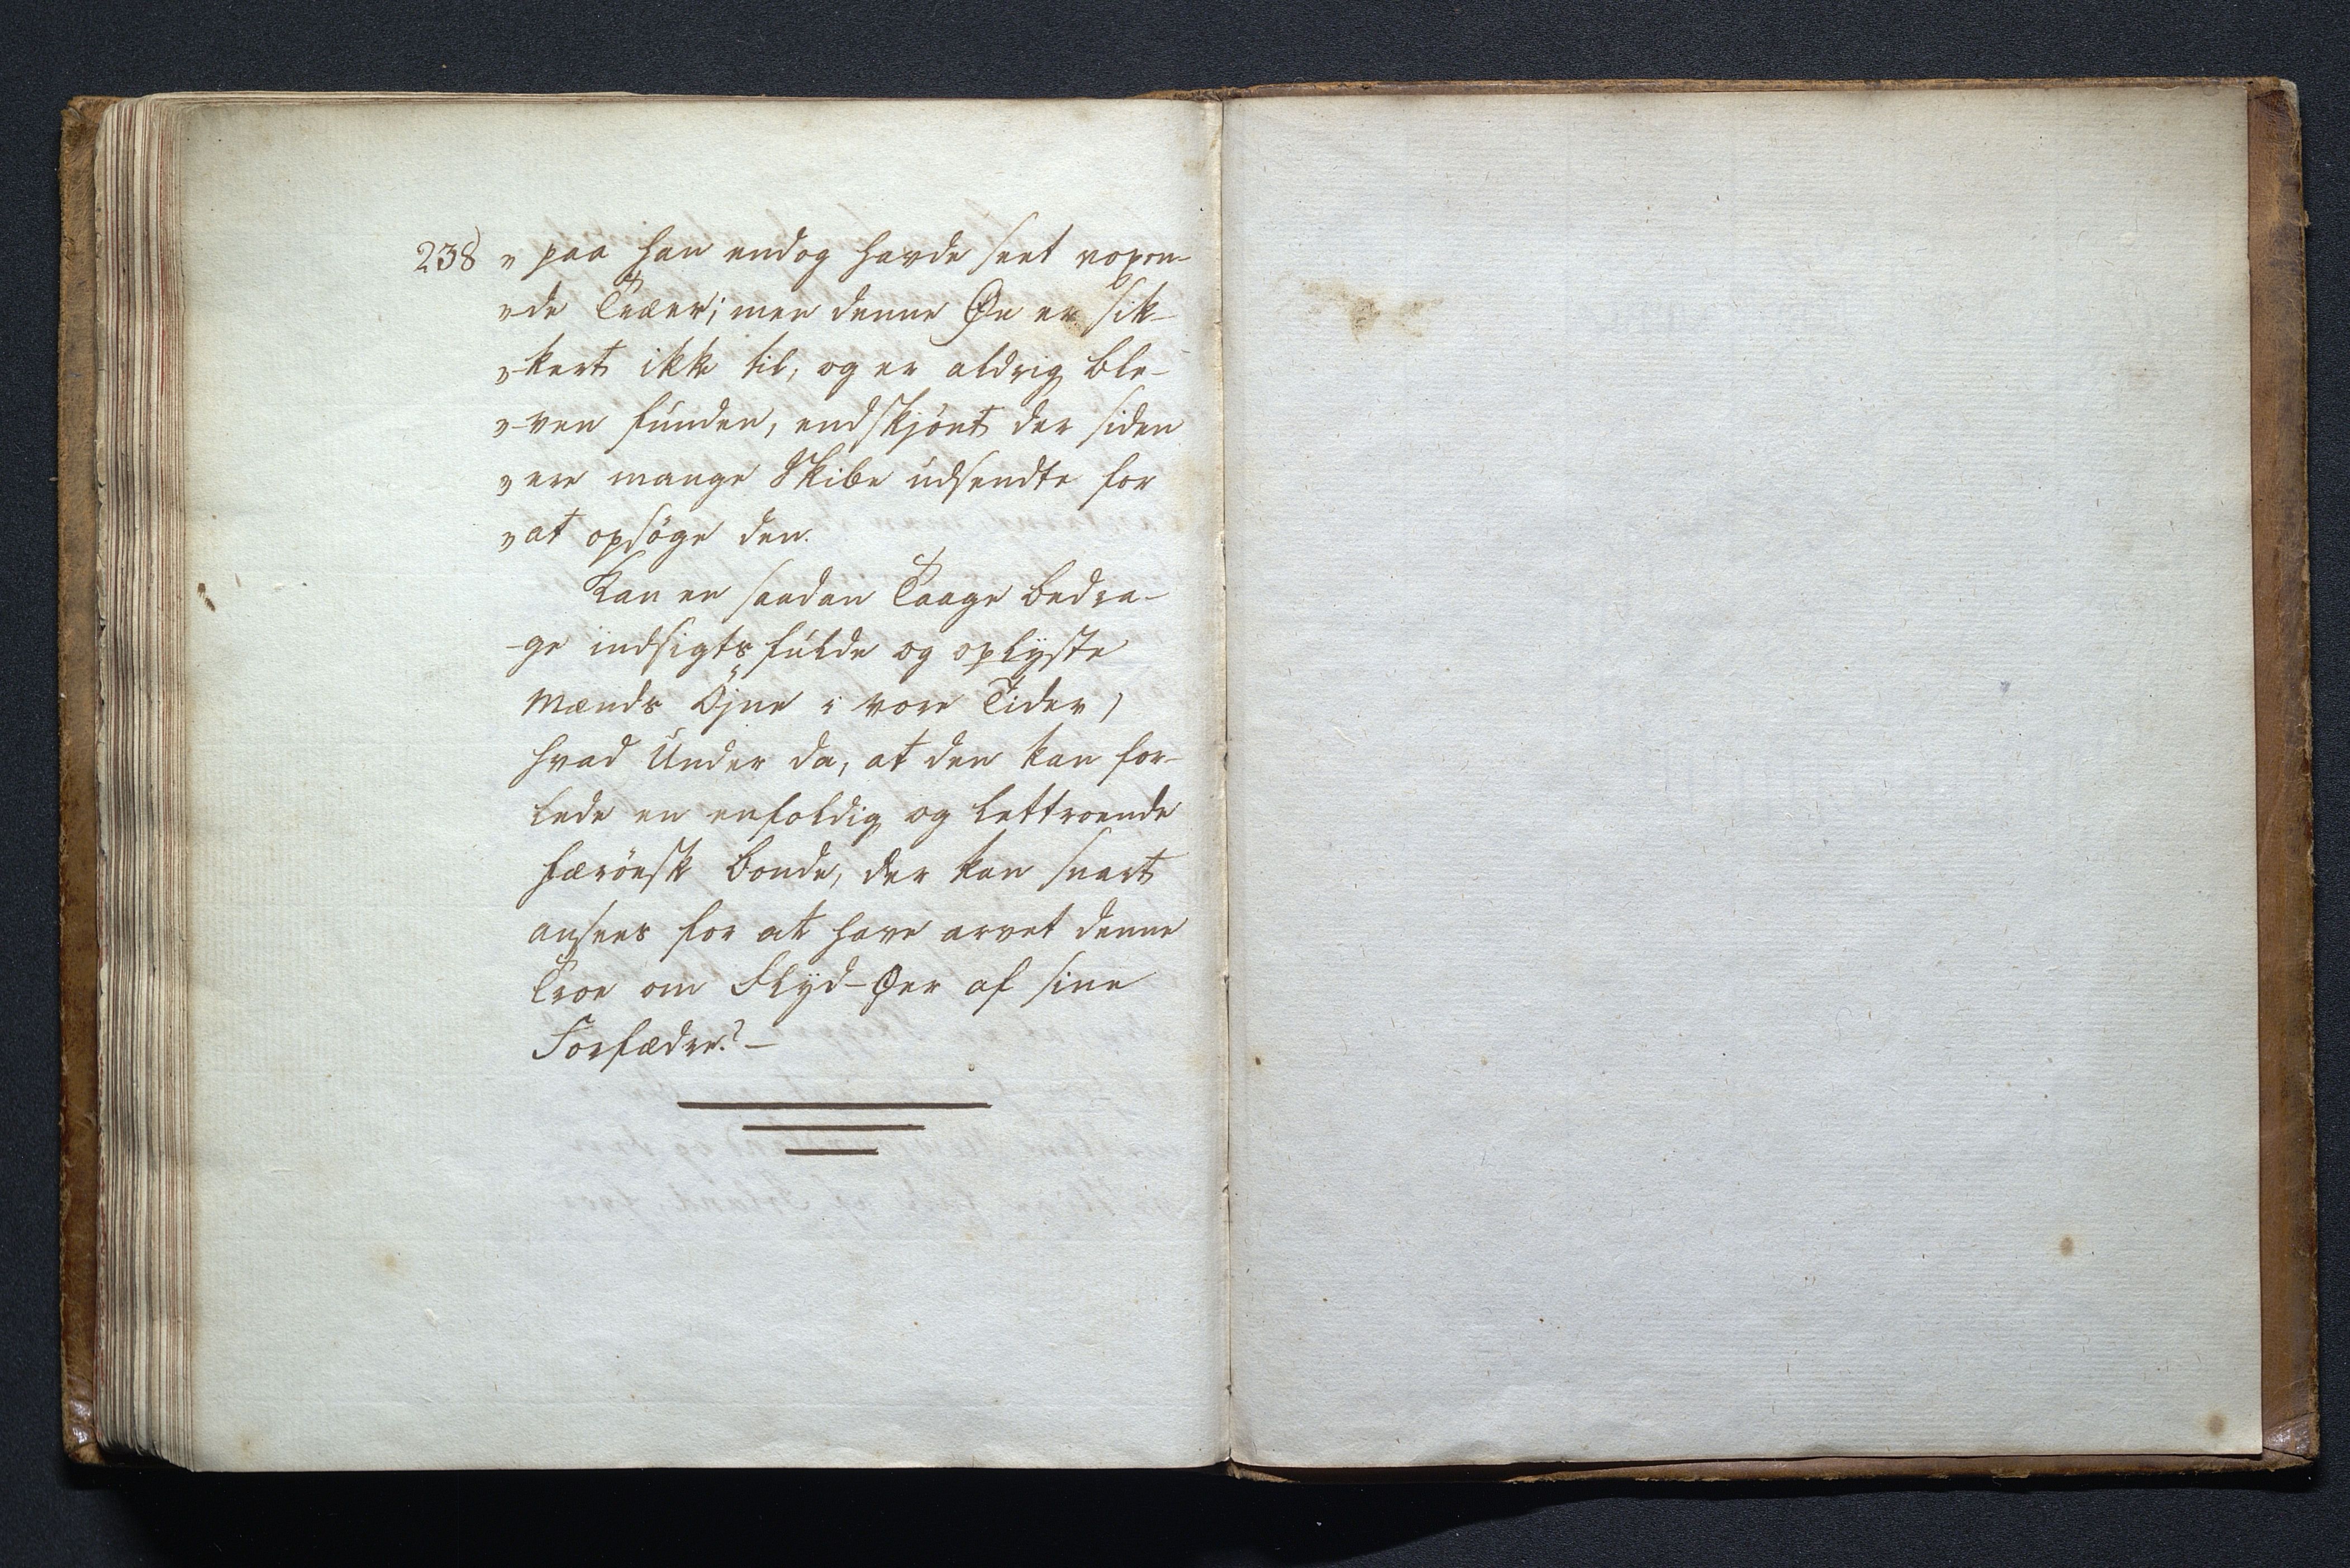 238 „paa han endog havde seet voxen-
„de Træer; men denne Øe er sik-
„kert ikke til, og er aldrig ble-
„ven funden, endskjönt der siden
„ere mange Skibe udsendte for
„at opsöge den.
Kan en saadan Taage bedra-
-ge indsigtsfulde og oplyste
Mænds Öjne i vore Tider,
hvad Under da, at den kan for-
lede en enfoldig og lettroende
færöesk Bonde, der kan snart
ansees for at have arvet denne
Troe om Flyd-Øer af sine
Forfædre? —